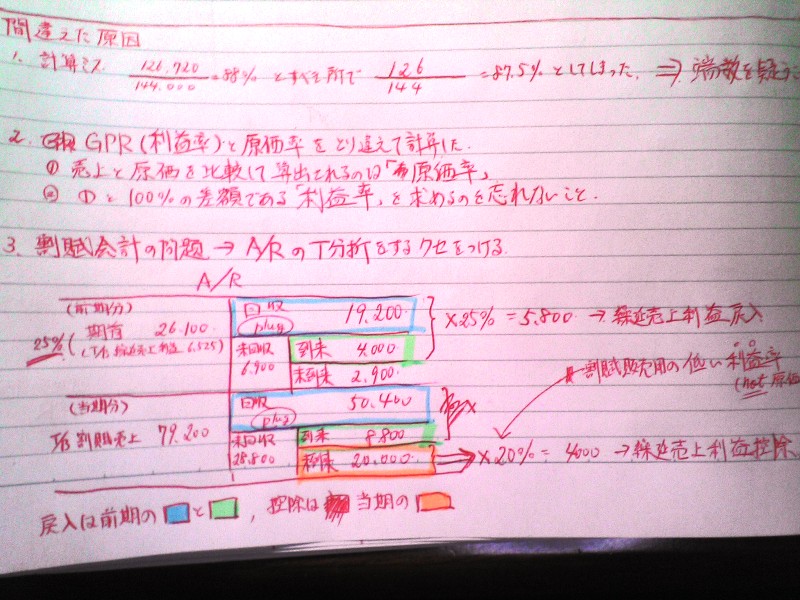 間違えた原因
1. 計算ミス 126.720/144.000=88% とすべき所で 126/144=87.5%としてしまった. ⇒ 端数を疑う
2. GPR(利益率)と原価率をとり違えて計算した.
① 売上と原価を比較して算出されるのは「原価率」
② ①と100%の差額である「利益率」を求めるのを忘れないこと.
3. 割賦会計の問題 → A/RのT分析をするクセをつける.
A/R
(前期分)
25% ( 期首 26.100
(T/B 繰延売上利益 6.525)
回収 plug 19.200
未回収 6.900
到来 4.000
未到来 2.900
×25% = 5.800 → 繰延売上利益戻入
(当期分)
T/B 割賦売上 79.200
回収 plug 50.400
未回収 28.800
到来 8.800
未到来 20.000
割賦販売用の低い利益率
(not 原価
×20% = 4000 → 繰延売上利益控除
戻入は前期の と , 控除は 当期の